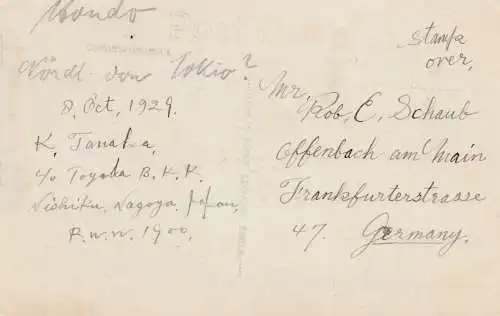 Hondo
Nördl. von Tokio?
8. Oct, 1929.
K. Tanaka,
c/o Toyoda B. K. K.
Nishiku, Nagoya, Japan,
P.W.W. 1900.
stamp
over,
Mr,
Rob, E, Schaub
Offenbach am Main
Frankfurterstrasse
47. Germany.